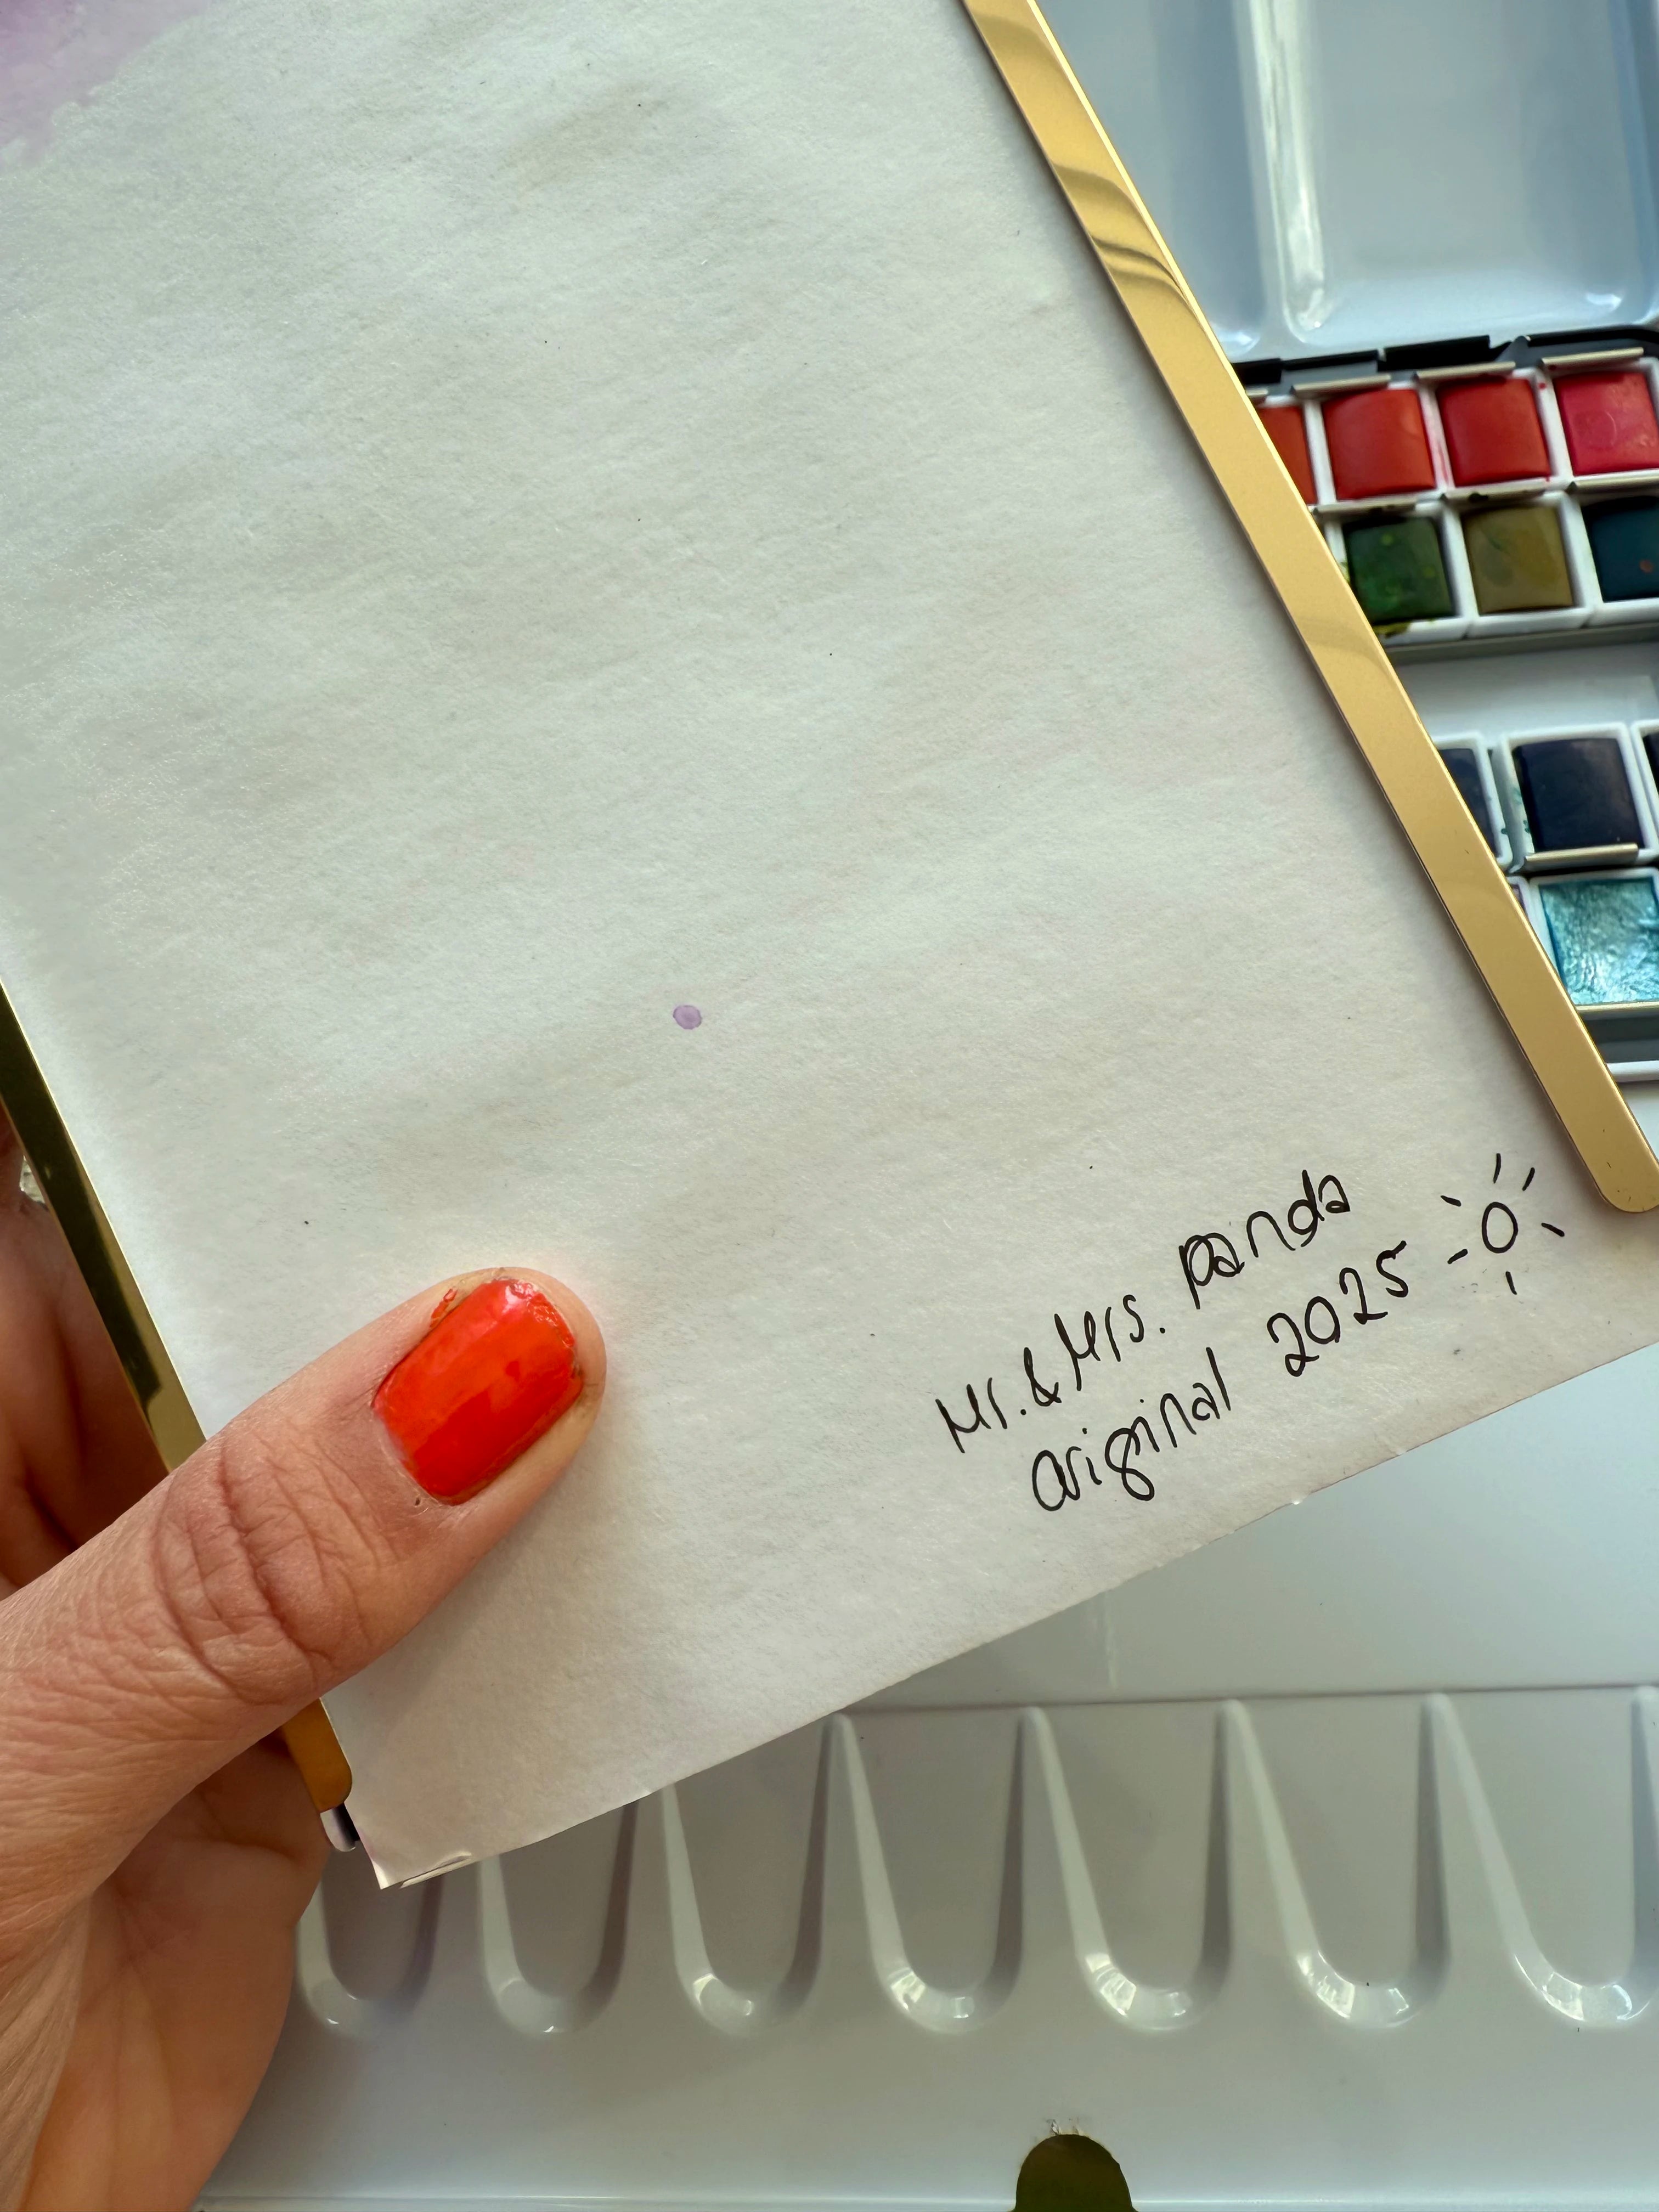 Mr. & Mrs. panda
original 2025